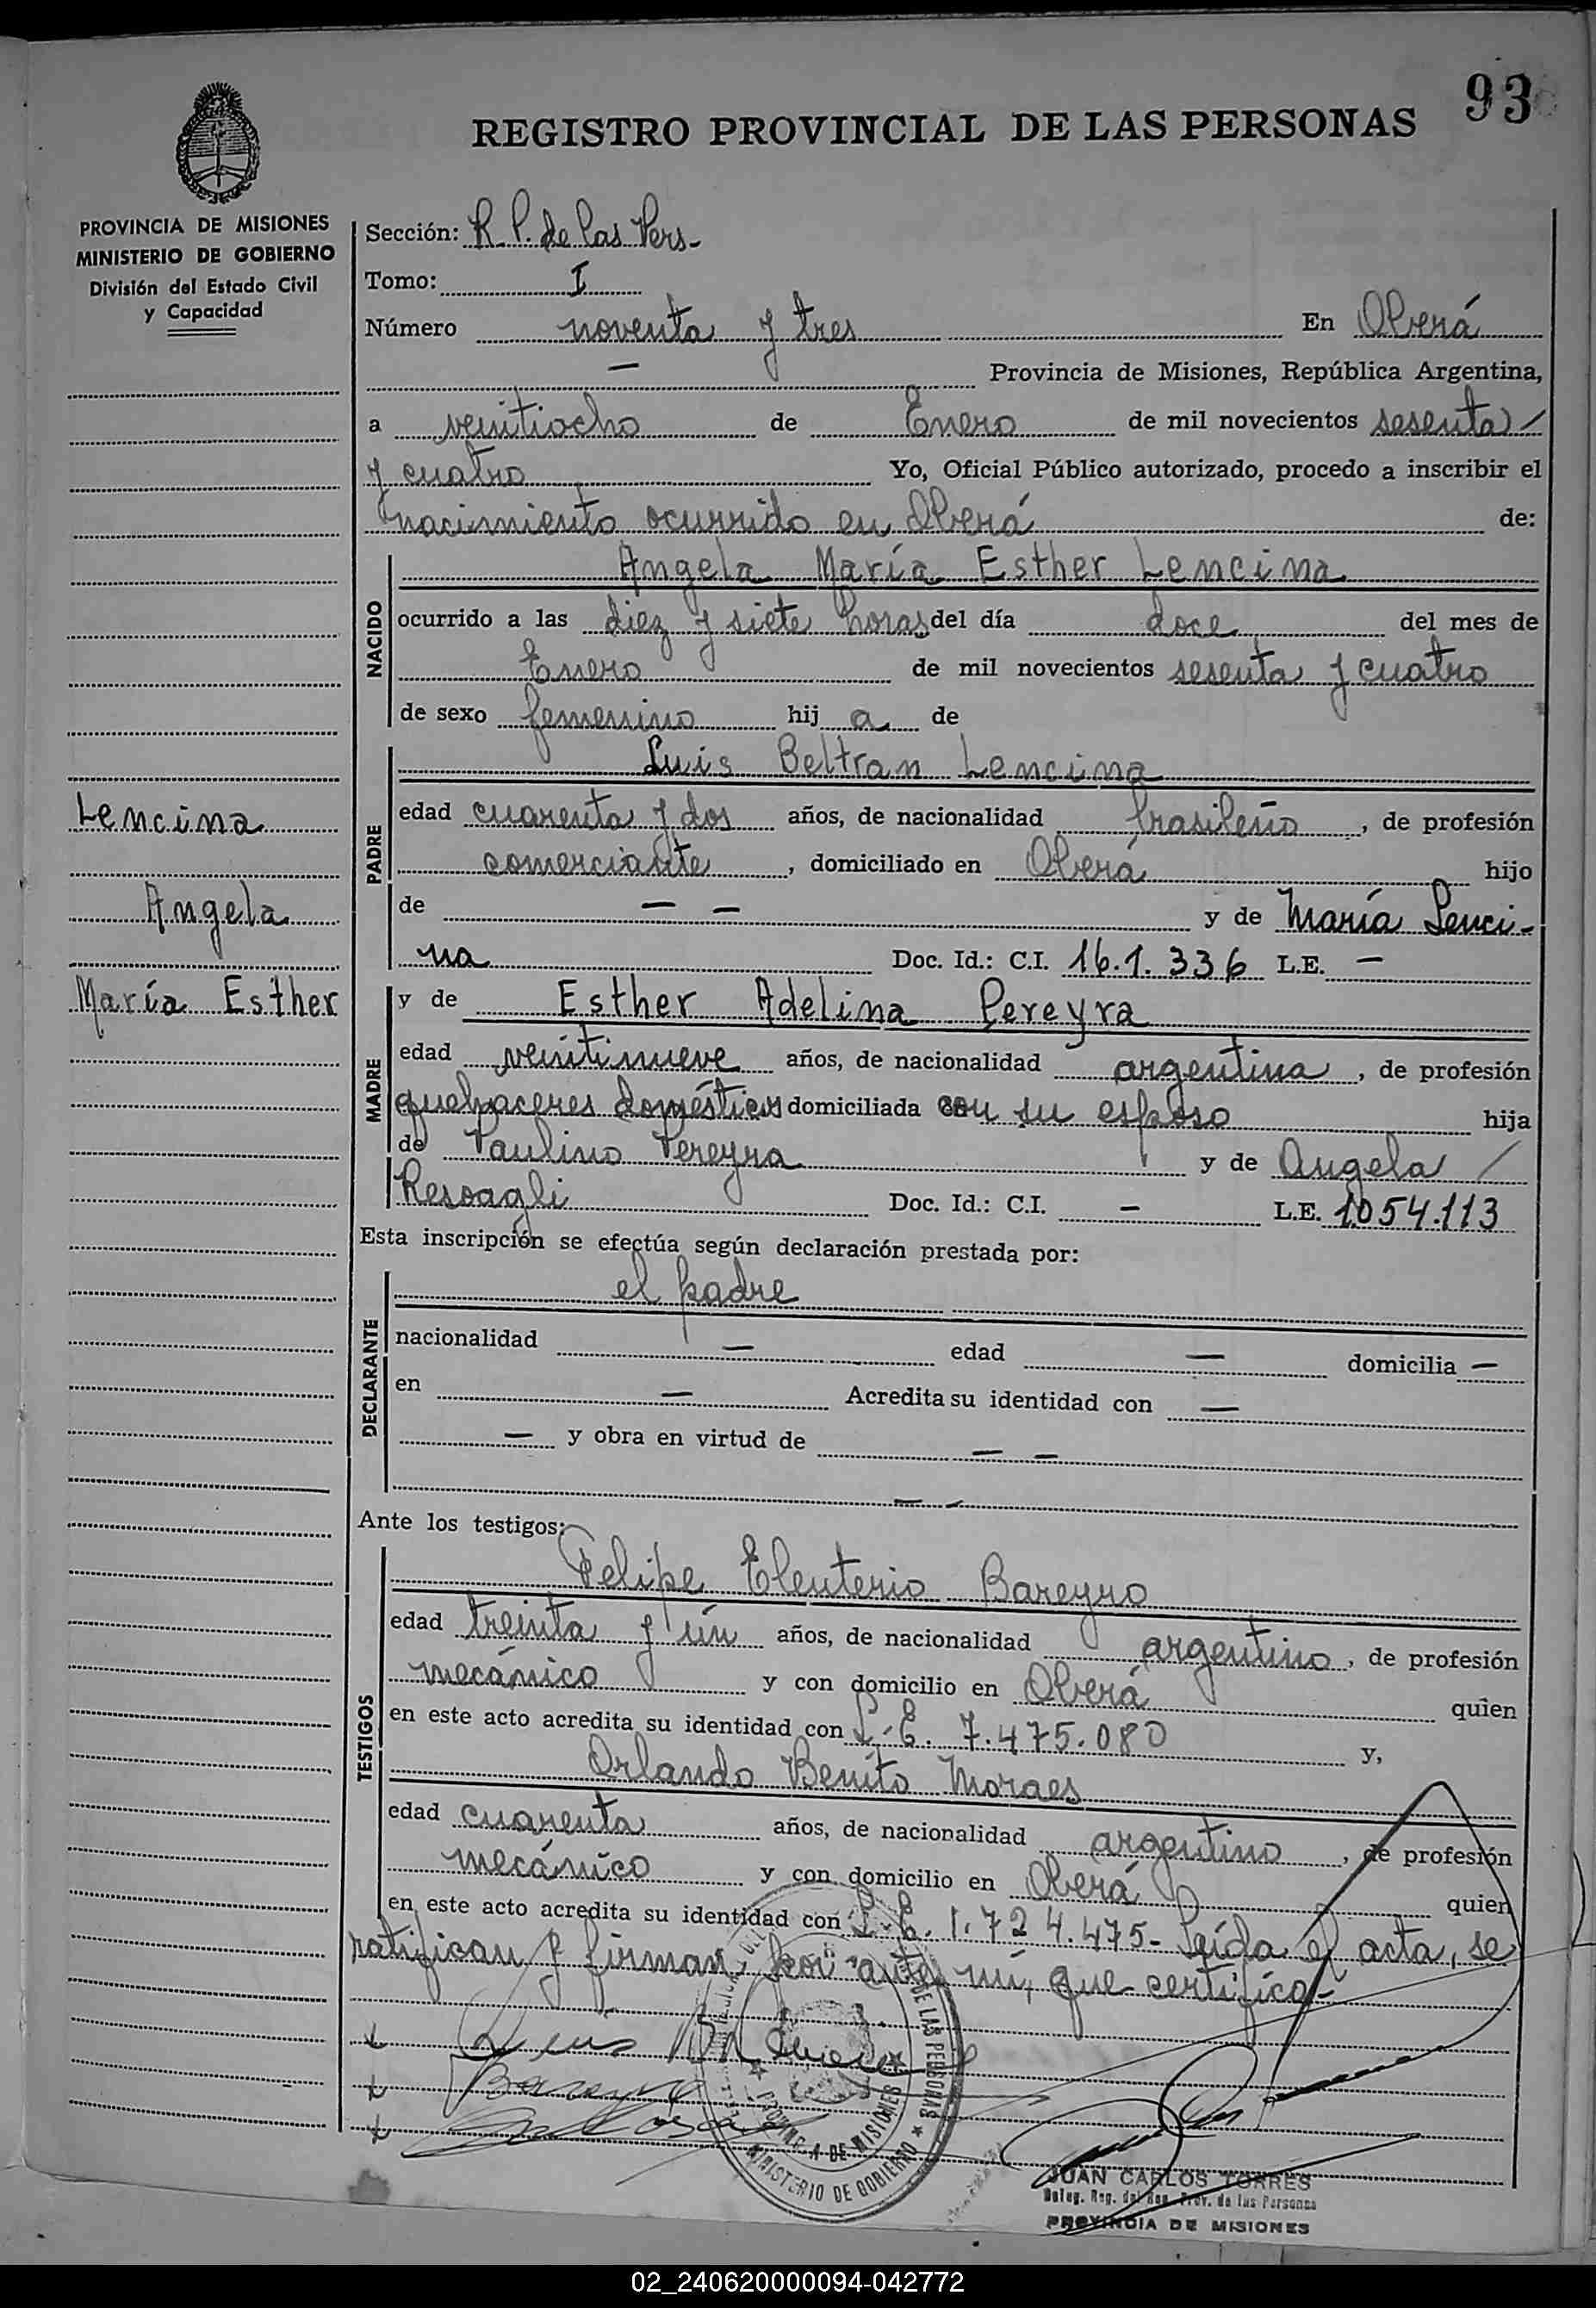 93
REGISTRO PROVINCIAL DE LAS PERSONAS
PROVINCIA DE MISIONES
MINISTERIO DE GOBIERNO
División del Estado Civil
y Capacidad
Sección: R. P. de las Pers-
Tomo: I
Número noventa y tres En Oberá
— Provincia de Misiones, República Argentina,
a veintiocho de Enero de mil novecientos sesenta /
y cuatro Yo, Oficial Público autorizado, procedo a inscribir el
nacimiento ocurrido en Oberá de:
NACIDO
Angela María Esther Lencina
ocurrido a las diez y siete horas del día doce del mes de
Enero de mil novecientos sesenta y cuatro
de sexo femenino hij a de
PADRE
Luis Beltran Lencina
edad cuarenta y dos años, de nacionalidad brasileño, de profesión
comerciante, domiciliado en Oberá hijo
de — — y de María Lenci-
na Doc. Id.: C.I. 16.1.336 L.E. —
Lencina
Angela
María Esther
MADRE
y de Esther Adelina Pereyra
edad veintinueve años, de nacionalidad argentina, de profesión
quehaceres domésticos domiciliada con su esposo hija
de Paulino Pereyra y de Angela /
Resoagli Doc. Id.: C.I. — L.E. 1054.113
Esta inscripción se efectúa según declaración prestada por:
DECLARANTE
el padre
nacionalidad — edad — domicilia —
en — Acredita su identidad con —
— y obra en virtud de — —
— —
Ante los testigos:
TESTIGOS
Felipe Eleuterio Bareyro
edad treinta y ún años, de nacionalidad argentino, de profesión
mecánico y con domicilio en Oberá quien
en este acto acredita su identidad con L.E. 7.475.080 y,
Orlando Benito Moraes
edad cuarenta años, de nacionalidad argentino, de profesión
mecánico y con domicilio en Oberá quien
en este acto acredita su identidad con L.E. 1.724.475- Leída el acta, se
ratifican y firman, por ante mí, que certifico-
Luis
Bareyro
DE LAS PERSONAS
PROVINCIA DE MISIONES
MINISTERIO DE GOBIERNO
JUAN CARLOS TORRES
Deleg. Reg. del Reg. Prov. de las Personas
PROVINCIA DE MISIONES
02_240620000094-042772